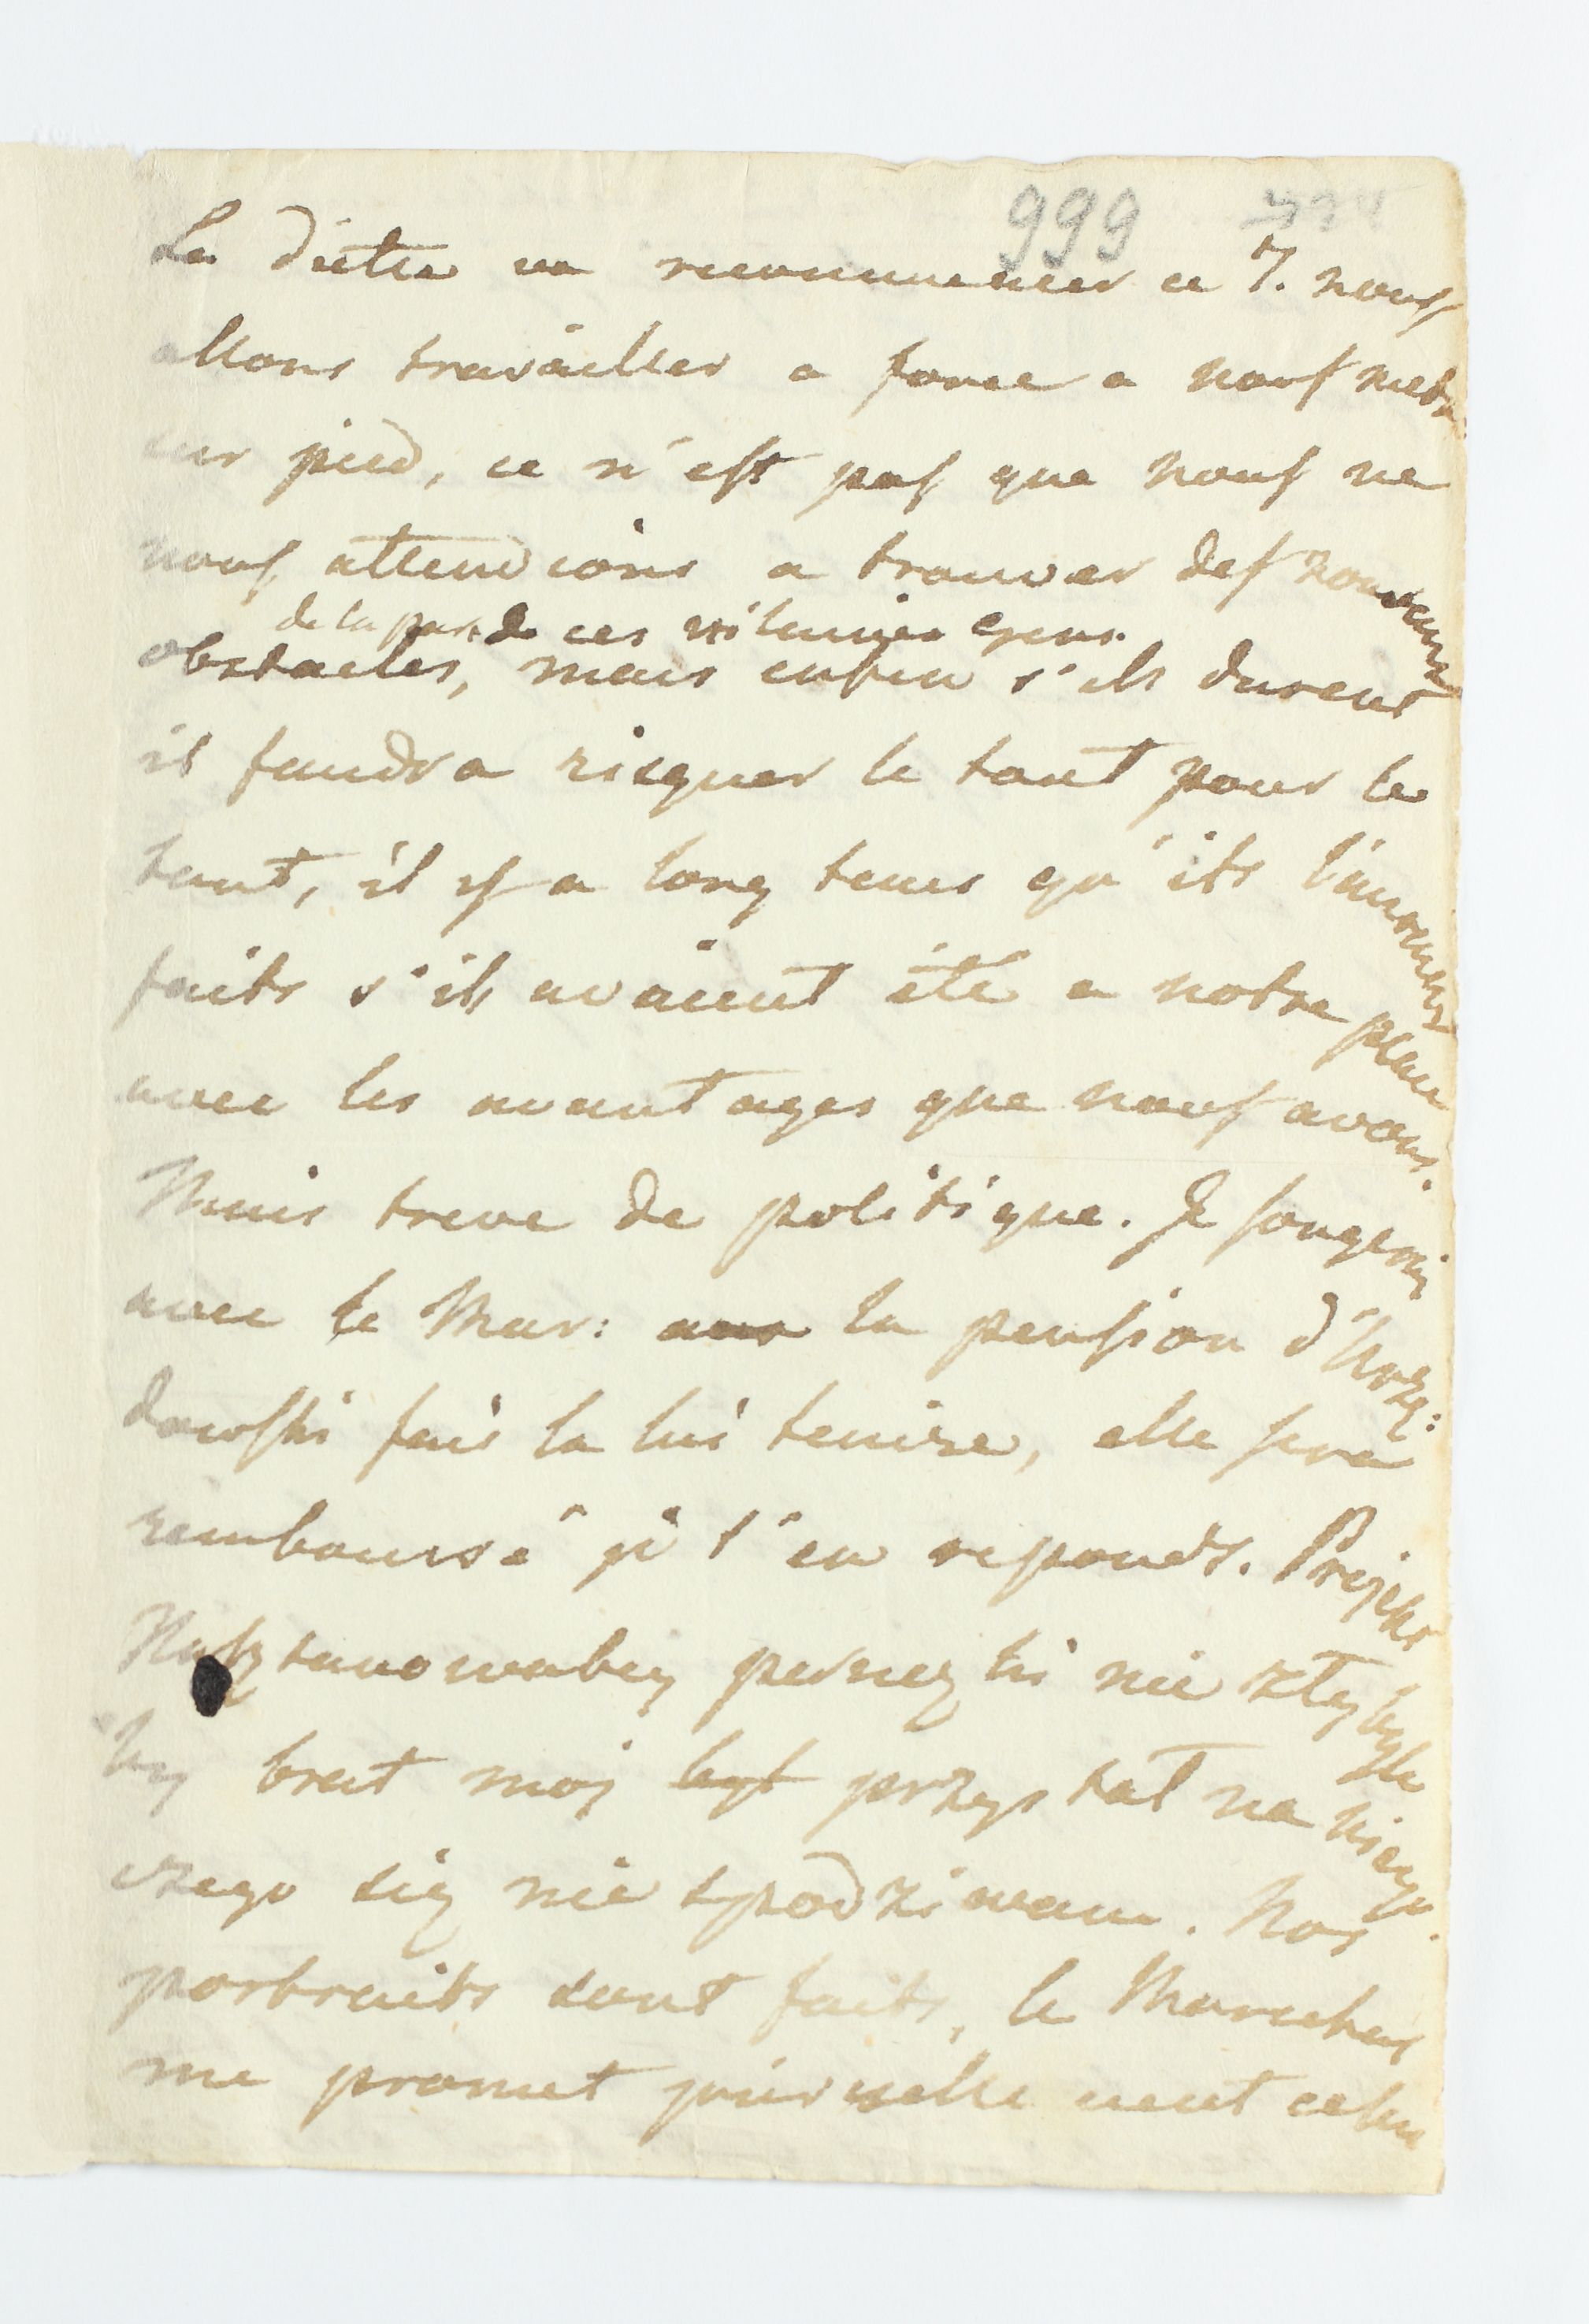 999
La diette va recommencer ce 7. nous
allons travailler a force a nous mettre
sur pied, ce n'est pas que nous ne
nous attendions a trouver des nouveaux
de la part de ces vilaines gens.
obstacles, mais enfin s'ils durent
il faudra risquer le tout pour le
tout, il y a long tems qu'ils l'auroient
faits s'ils avaient été a notre place
avec les avantages que nous avons.
Mais treve de politique. Je songerai
avec le Mar: la pension d'
dowski fais la lui tenire, elle sera
remboursé je t'en reponds. Projekt
pewnez li nie zły byle
by brat moj był przystał na niego.
czego się nie spodziwam. Nos
portraits sont faits, le Marechal
me promet journellement celui